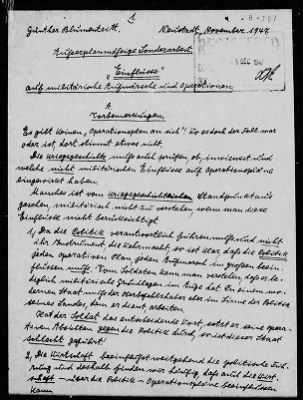 1
B-707
Günther Blumentritt. Neustadt, November 1947
Ausserplanmässige Sonderarbeit
DEC 1947
"Einflüsse"
auf militärische Aufmärsche und Operationen.
A
Vorbemerkungen.
Es gibt keinen „Operationsplan an sich"! Wo es doch der Fall war
oder ist, dort stimmt etwas nicht.
Die Kriegsgeschichte muss auch prüfen, ob, inwieweit und
welche nicht militärischen Einflüsse auf Operationspläne
eingewirkt haben.
Manches ist vom kriegsgeschichtlichen Standpunkt aus
gesehen, militärisch nicht zu verstehen, wenn man diese
Einflüsse nicht berücksichtigt.
1.) Da die Politik verantwortlich führen muss und nicht
ihr Instrument, die Wehrmacht, so ist klar, dass die Politik
jeden operativen Plan, jeden Aufmarsch im grossen beein-
flussen muss. Vom Soldaten kann man verstehen, dass er le-
diglich militärische Grundlagen im Auge hat. In einem mo-
dernen Staat muss der Machthaber aber im Sinne der Politik
seines Landes, dem er dient, arbeiten.
Hat der Soldat das entscheidende Wort, setzt er seine opera-
tiven Absichten gegen die Politik durch, so ist dieser Staat
schlecht geführt!
2.) Die Wirtschaft beeinflusst weitgehend die politische Füh-
rung und deshalb finden wir häufig, dass auch die Wirt-
schaft – über die Politik – Operationspläne beeinflussen
kann.